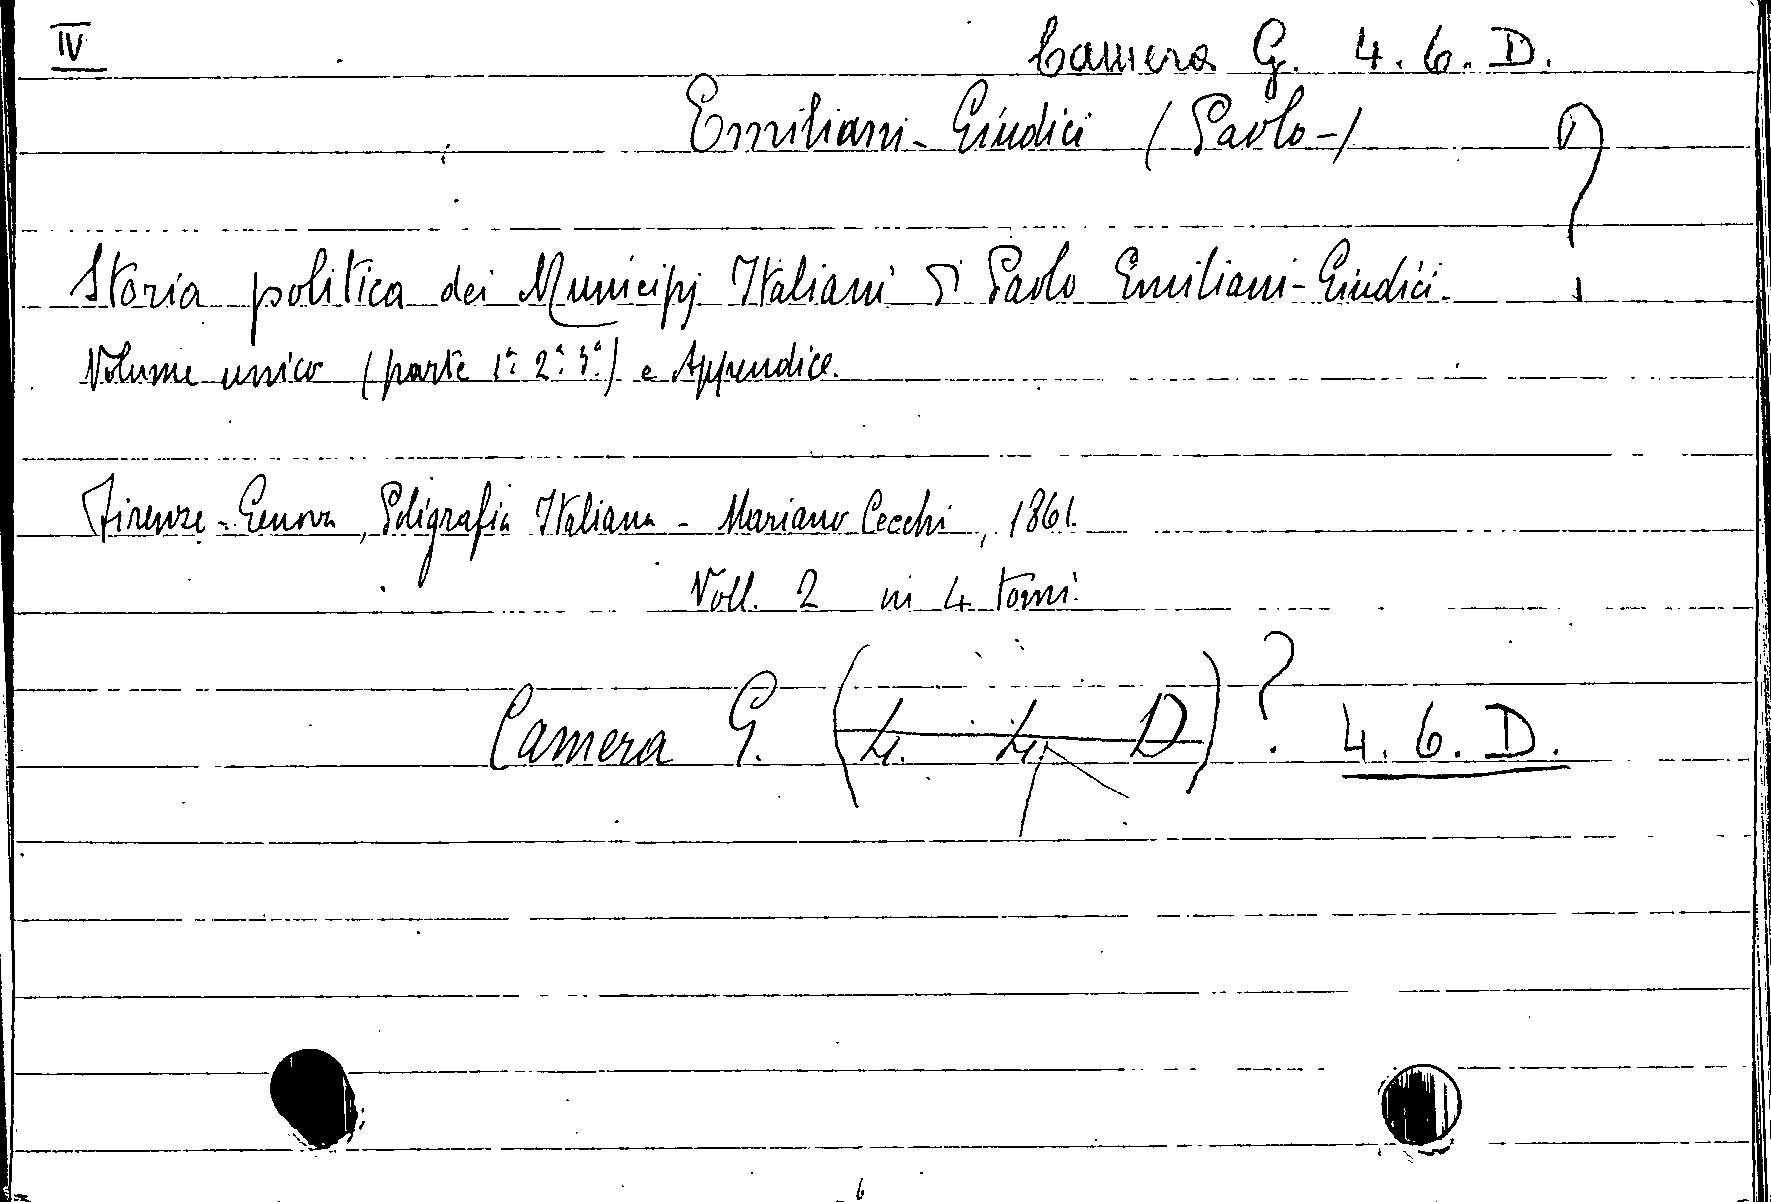 IV
Camera G. 4. 6. D.
Emiliani-Giudici (Paolo-) ?
Storia politica dei Municipj Italiani di Paolo Emiliani-Giudici.
Volume unico (parte 1ª. 2ª. 3ª.) e Appendice.
Firenze-Genova, Poligrafia Italiana - Mariano Cecchi, 1861.
Voll. 2 in 4 tomi.
Camera G. (4. 4. D)? 4. 6. D.
6